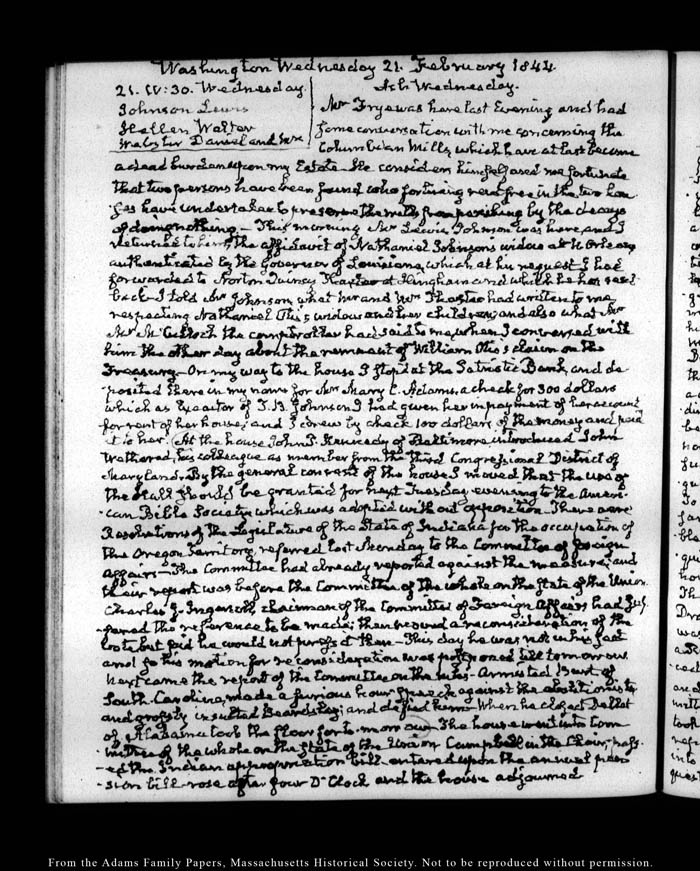 Washington Wednesday 21. February 1844
21. IV:30. Wednesday. Ash Wednesday.
Johnson Lewis
Hellen Walter
Webster Daniel and Mrs
Mr Frye was here last Evening and had
some conversation with me concerning the
Columbian Mills, which have at last become
a dead burden upon my Estate. He considers himself and me fortunate
that two persons have been found who for living rent free in the two hou
ses have undertaken to preserve the mills from perishing by the decays
of doing nothing. — This morning Mr Lewis Johnson was here, and I
returned to him, the affidavit of Nathaniel Johnson's widow at N. Orleans
authenticated by the Governor of Louisiana, which at his request I had
forwarded to Norton Quincy Thaxter at Hingham and which he has sent
back. I told Mr Johnson, what he and Mrs Thaxter had written to me
respecting Nathaniel Otis's widow and her children; and also what Mr
Mr McCulloch the comptroller had said to me when I conversed with
him the other day about the remnant of William Otis's claim on the
Treasury. On my way to the house I stop'd at the Patriotic Bank, and de
posited there in my name for Mrs Mary C. Adams, a check for 300 dollars
which as Executor of T. B. Johnson I had given her in payment of her account
for rent of her house; and I drew by check 100 dollars of the money and paid
it to her. At the house John P. Kennedy of Baltimore introduced John
Wethered, his colleague as member from the third Congressional District of
Maryland. By the general consent of the house I moved that the use of
the Hall should be granted for next Tuesday evening to the Ameri
can Bible Society which was adopted without opposition. There were
Resolutions of the Legislature of the State of Indiana for the occupation of
the Oregon Territory, referred last Monday to the Committee of foreign
affairs — The Committee had already reported against the measure; and
their report was before the Committee of the whole on the state of the Union.
Charles J. Ingersoll, chairman of the Committee of Foreign Affairs had suf
fered the reference to be made; then moved a reconsideration of the
vote but said he would not press it then — This day he was not in his seat
and so his motion for reconsideration was postponed till to-morrow.
Next came the report of the Committee on the rules. Armistead Burt of
South Carolina, made a furious hour speech against the abolitionists
and grossly insulted Beardsley; and defied him — When he closed Dellet
of Alabama took the floor for to-morrow. The house went into com
mittee of the whole on the state of the Union Campbell in the Chair, pass
ed the Indian appropriation bill. entered upon the annual pen
sion bill. rose after four O'Clock and the house adjourned
From the Adams Family Papers, Massachusetts Historical Society. Not to be reproduced without permission.